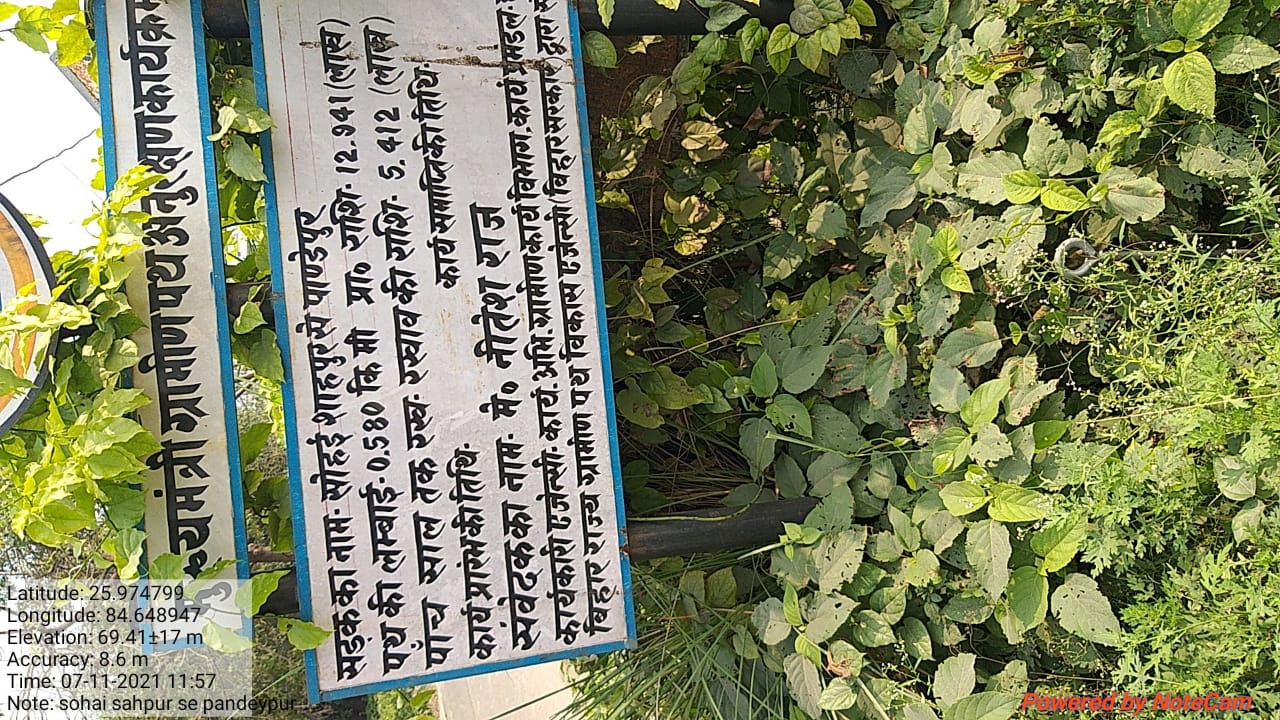 मुख्यमंत्री ग्रामीण पथ अनुरक्षण कार्यक्रम
सड़क का नाम:- सोहई शाहपुर से पाण्डेपुर
पथ की लम्बाई:- 0.580 कि मी प्रा० राशि:- 12.941 (लाख)
पांच साल तक रख-रखाव की राशि:- 5.412 (लाख)
कार्य प्रारंभ की तिथि:- कार्य समाप्ति की तिथि:-
संवेदक का नाम:- मे० नीतेश राज
कार्यकारी एजेन्सी:- कार्य. अभि. ग्रामीण कार्य विभाग, कार्य प्रमंडल:-
बिहार राज्य ग्रामीण पथ विकास एजेन्सी (बिहार सरकार) द्वारा
Latitude: 25.974799
Longitude: 84.648947
Elevation: 69.41±17 m
Accuracy: 8.6 m
Time: 07-11-2021 11:57
Note: sohai sahpur se pandeypur
Powered by NoteCam